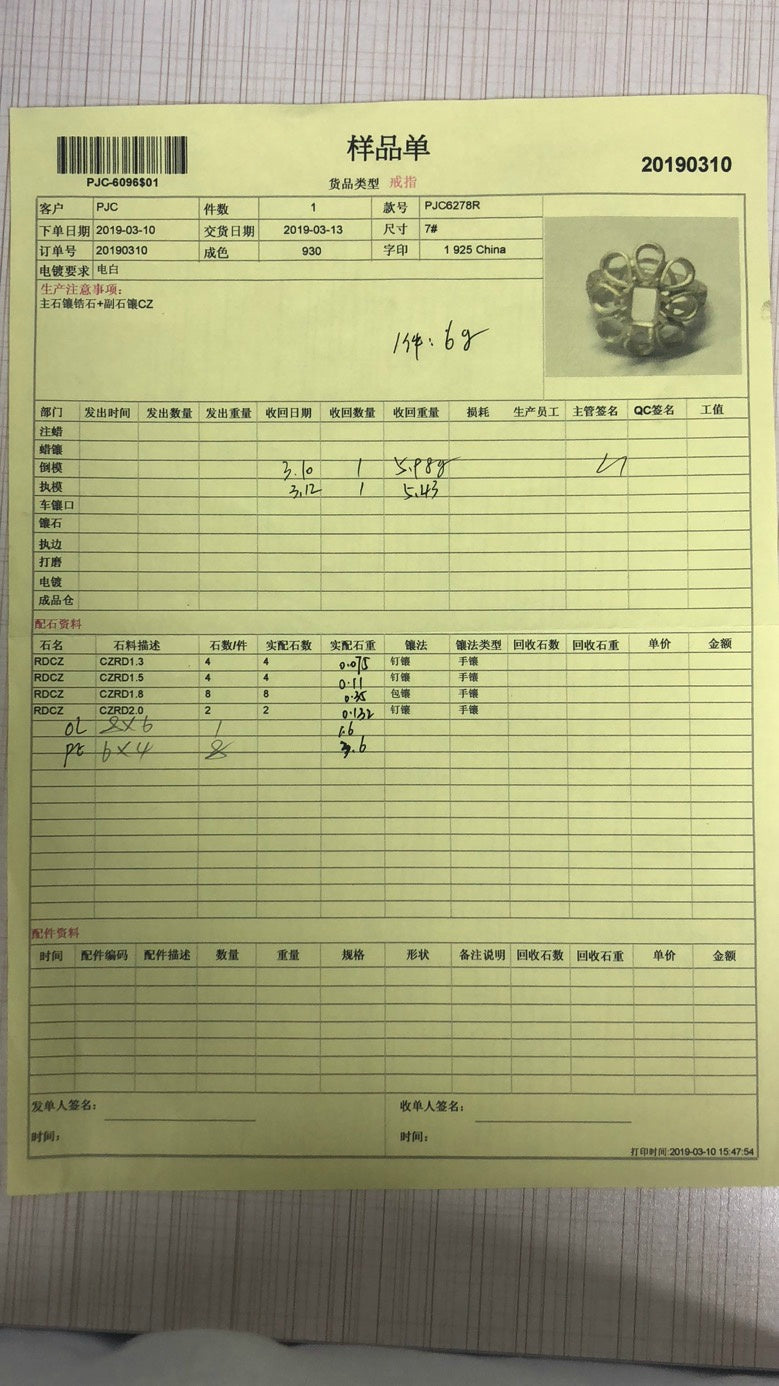 样品单
PJC-6096$01
货品类型 戒指
20190310
客户 PJC 件数 1 款号 PJC6278R
下单日期 2019-03-10 交货日期 2019-03-13 尺寸 7#
订单号 20190310 成色 930 字印 1 925 China
电镀要求 电白
生产注意事项:
主石镶锆石+副石镶CZ
1件: 6g
部门 发出时间 发出数量 发出重量 收回日期 收回数量 收回重量 损耗 生产员工 主管签名 QC签名 工值
注蜡
蜡镶
倒模 3.10 1 5.98g
执模 3.12 1 5.43
车镶口
镶石
执边
打磨
电镀
成品仓
配石资料
石名 石料描述 石数/件 实配石数 实配石重 镶法 镶法类型 回收石数 回收石重 单价 金额
RDCZ CZRD1.3 4 4 0.075 钉镶 手镶
RDCZ CZRD1.5 4 4 0.11 钉镶 手镶
RDCZ CZRD1.8 8 8 0.35 包镶 手镶
RDCZ CZRD2.0 2 2 0.132 钉镶 手镶
OL 8×6 1 1.6
PE 6×4 8 3.6
配件资料
时间 配件编码 配件描述 数量 重量 规格 形状 备注说明 回收石数 回收石重 单价 金额
发单人签名: 收单人签名:
时间: 时间:
打印时间:2019-03-10 15:47:54